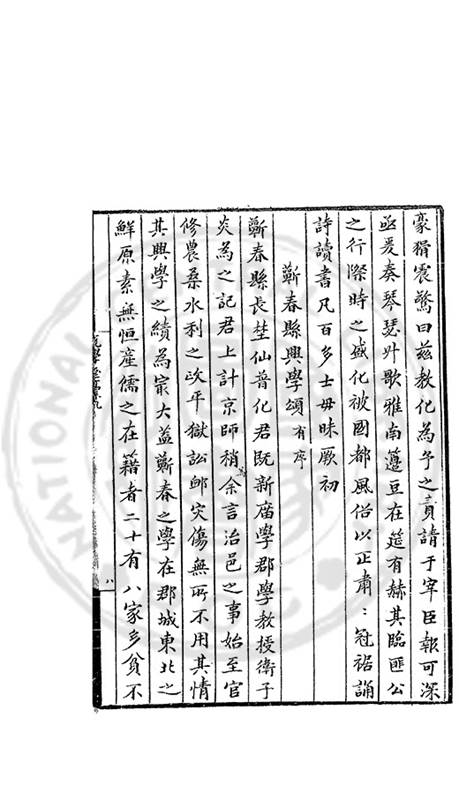 豪猾震驚曰兹教化為予之責請于宰臣報可深
亟爰奏琴瑟升歌雅南籩豆在筵有赫其臨匪公
之行際時之盛化被國都風俗以正肅:冠裾誦
詩讀書凡百多士毋昧厥初
蘄春縣興學頌有序
蘄春縣長埜仙普化君既新廟學郡學教授衛子
炎為之記君上計京師稍為余言治邑之事始至官
修農桑水利之政平獄訟郵灾傷無所不用其情
其興學之績為㝡大葢蘄春之學在郡城東北之
鮮原素無恒產儒之在籍者二十有八家多貧不
八
NATIONAL